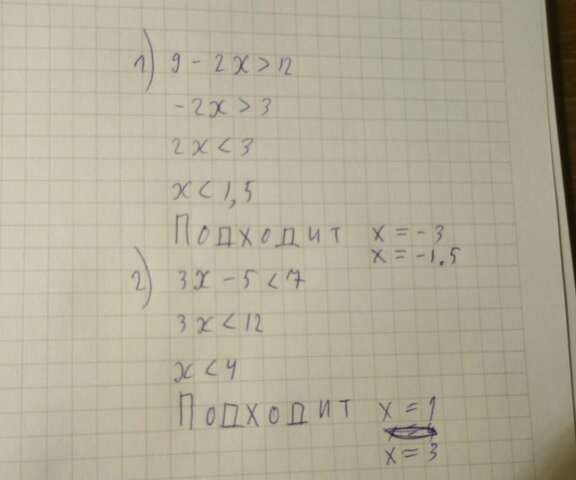 1) 9 - 2x > 12
-2x > 3
2x < 3
x < 1,5
Подходит x = -3
x = -1.5
2) 3x - 5 < 7
3x < 12
x < 4
Подходит x = 1
x = 3